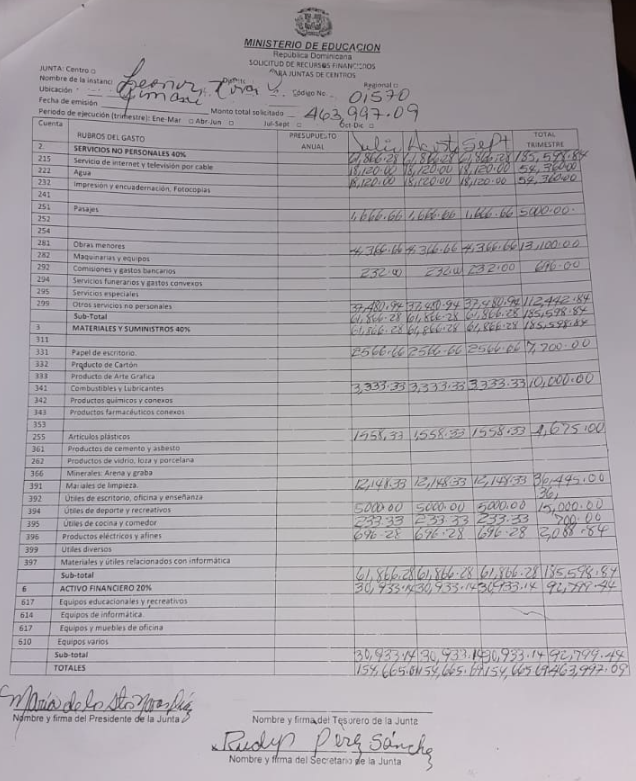 MINISTERIO DE EDUCACION
República Dominicana
SOLICITUD DE RECURSOS FINANCIEROS
PARA JUNTAS DE CENTROS
JUNTA: Centro □ Distrito Regional □
Nombre de la instancia Leonor
Ubicación Jimaní Código No. 01570
Fecha de emisión Monto total solicitado 463,997.09
Periodo de ejecución (trimestre): Ene-Mar □ Abr-Jun □ Jul-Sept □ Oct-Dic □
Cuenta RUBROS DEL GASTO PRESUPUESTO ANUAL Julio Agosto Sept TOTAL TRIMESTRE
2. SERVICIOS NO PERSONALES 40% 61,866.28 61,866.28 61,866.28 185,598.84
215 Servicio de internet y televisión por cable 18,120.00 18,120.00 18,120.00 54,360.00
222 Agua 18,120.00 18,120.00 18,120.00 54,360.00
232 Impresión y encuadernación, Fotocopias
241
251 Pasajes 1,666.66 1,666.66 1,666.66 5000.00
252
254
281 Obras menores 4,366.66 4,366.66 4,366.66 13,100.00
282 Maquinarias y equipos
292 Comisiones y gastos bancarios 232.00 232.00 232.00 696.00
294 Servicios funerarios y gastos convexos
295 Servicios especiales
299 Otros servicios no personales 37,480.94 37,480.94 37,480.94 112,442.84
Sub-Total 61,866.28 61,866.28 61,866.28 185,598.84
3 MATERIALES Y SUMINISTROS 40% 61,866.28 61,866.28 61,866.28 185,598.84
311
331 Papel de escritorio. 2566.66 2566.66 2566.66 7,700.00
332 Producto de Cartón
333 Producto de Arte Grafica
341 Combustibles y Lubricantes 3,333.33 3,333.33 3,333.33 10,000.00
342 Productos químicos y conexos
343 Productos farmacéuticos conexos
353
255 Artículos plásticos 1558.33 1,558.33 1558.33 4,675.00
361 Productos de cemento y asbesto
262 Productos de vidrio, loza y porcelana
366 Minerales: Arena y graba
391 Mariales de limpieza. 12,148.33 12,148.33 12,148.33 36,445.00
392 Útiles de escritorio, oficina y enseñanza 36,
394 Útiles de deporte y recreativos 5000.00 5000.00 5000.00 15,000.00
395 Útiles de cocina y comedor 233.33 233.33 233.33 700.00
396 Productos eléctricos y afines 696.28 696.28 696.28 2,088.84
399 Útiles diversos
397 Materiales y útiles relacionados con informática
Sub-total 61,866.28 61,866.28 61,866.28 185,598.84
6 ACTIVO FINANCIERO 20% 30,933.14 30,933.14 30,933.14 92,799.44
617 Equipos educacionales y recreativos
614 Equipos de informática.
617 Equipos y muebles de oficina
610 Equipos varios
Sub-total 30,933.14 30,933.14 30,933.14 92,799.44
TOTALES 154,665.69 154,665.69 154,665.69 463,997.09
María de los Stos
Nombre y firma del Presidente de la Junta
Nombre y firma del Tesorero de la Junta
Rudys Pérez Sánchez
Nombre y firma del Secretario de la Junta